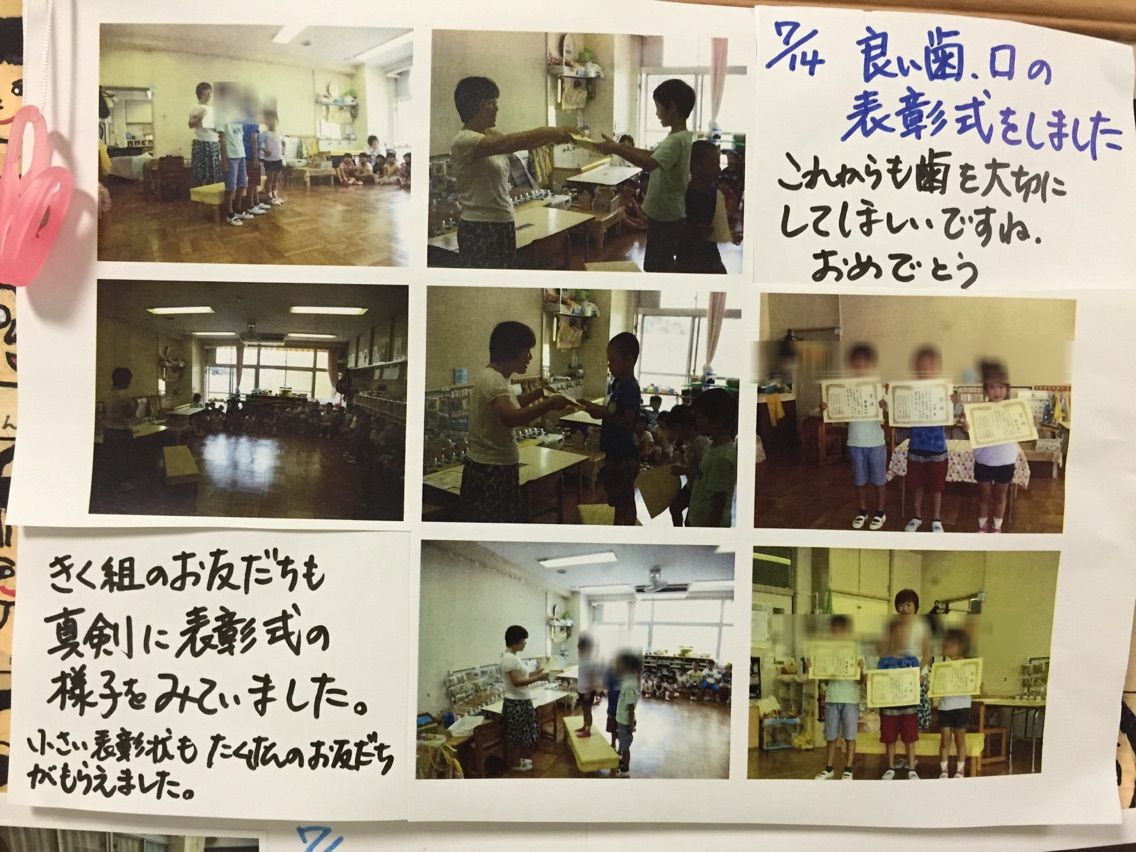 7/14 良い歯、口の
表彰式をしました
これからも歯を大切に
してほしいですね.
おめでとう
きく組のお友だちも
真剣に表彰式の
様子をみていました。
小さい表彰状もたくさんのお友だち
がもらえました。
7/